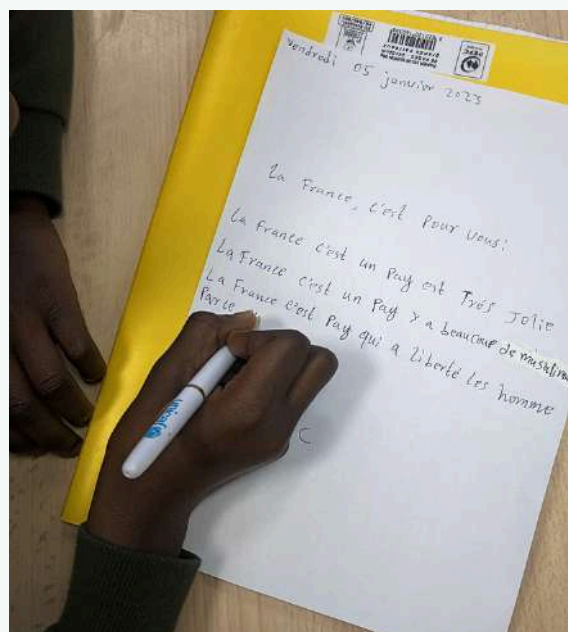 vendredi 05 janvier 2023
La France, c'est pour vous :
La France c'est un Pay est Trés Jolie
La France c'est un Pay y a beaucoup de
La France c'est Pay qui a liberté les homme
Parce
C
unicef